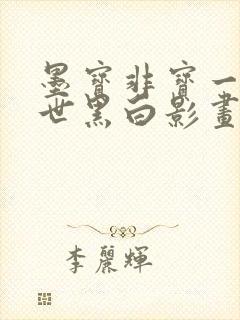 墨寶非寶一
世黑白影畫
李麗輝